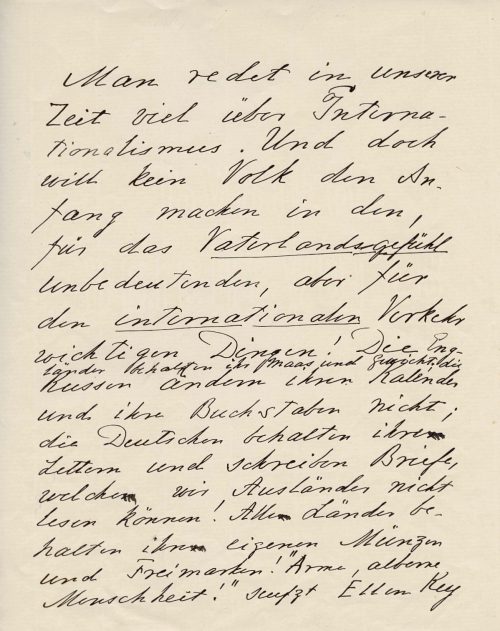 Man redet in unserer
Zeit viel über Interna-
tionalismus. Und doch
will kein Volk den An-
fang machen in den,
für das Vaterlandsgefühl
unbedeutenden, aber für
den internationalen Verkehr
wichtigen Dingen! Die Eng-
länder behalten ihr Maas und Gewicht; die
Russen ändern ihren Kalender
und ihre Buchstaben nicht;
die Deutschen behalten ihre
Lettern und schreiben Briefe,
welche wir Ausländer nicht
lesen können! Alle Länder be-
halten ihre eigenen Münzen
und Freimarken! "Arme, alberne
Menschheit!" seufzt Ellen Key